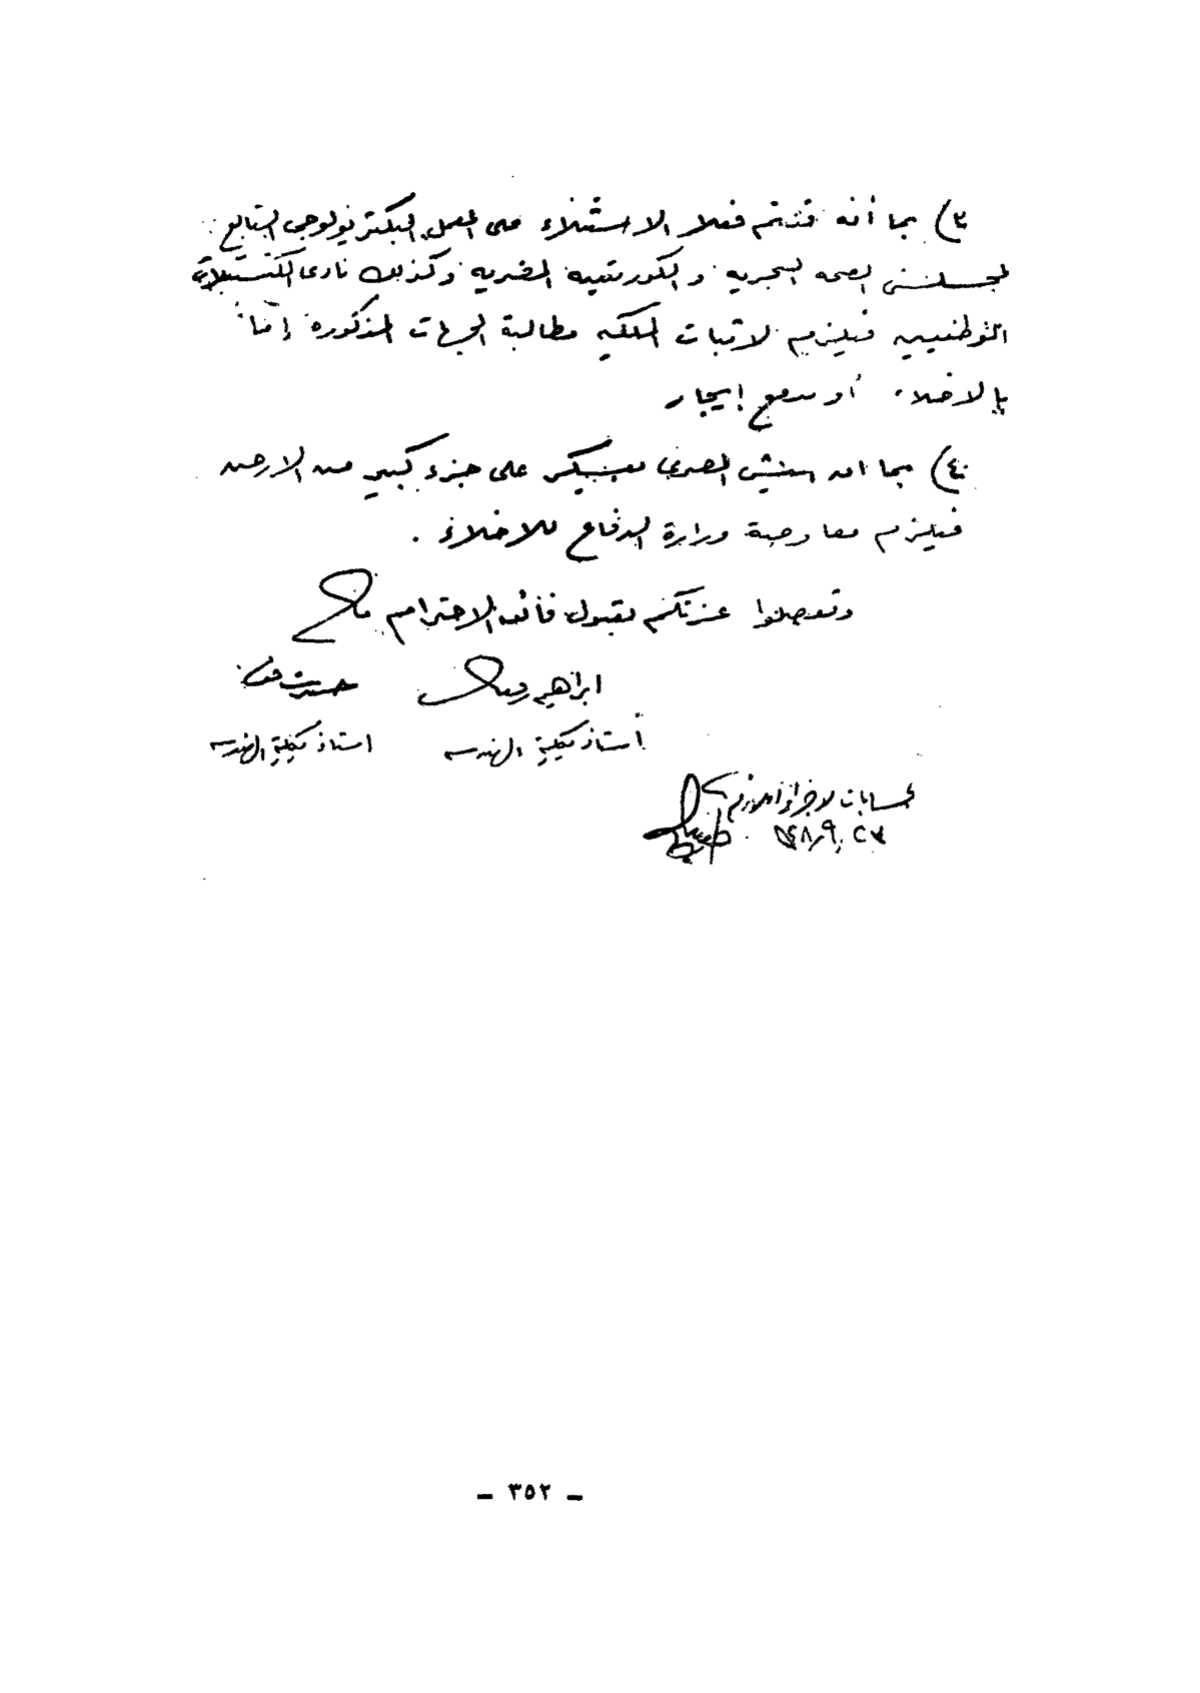 ٣) بما أنه قد تم فعلا الاستيلاء على المعمل البكتريولوجى التابع
لمجلس الصحه البحريه و الكورنتينه المصريه وكذلك نادى
الموظفين فيلزم لاثبات الملكيه مطالبة الجهات المذكوره إما
بالاخلاء أو بدفع إيجار
٤) بما ان الجيش المصرى معسكر على جزء كبير من الارض
فيلزم وزارة الدفاع للاخلاء .
وتفضلوا عزتكم بقبول فائق الاحترام
ابراهيم
أستاذ بكلية الهندسه استاذ بكلية الهندسه
لحسابات لاجراء اللازم
– ٣٥٢ –